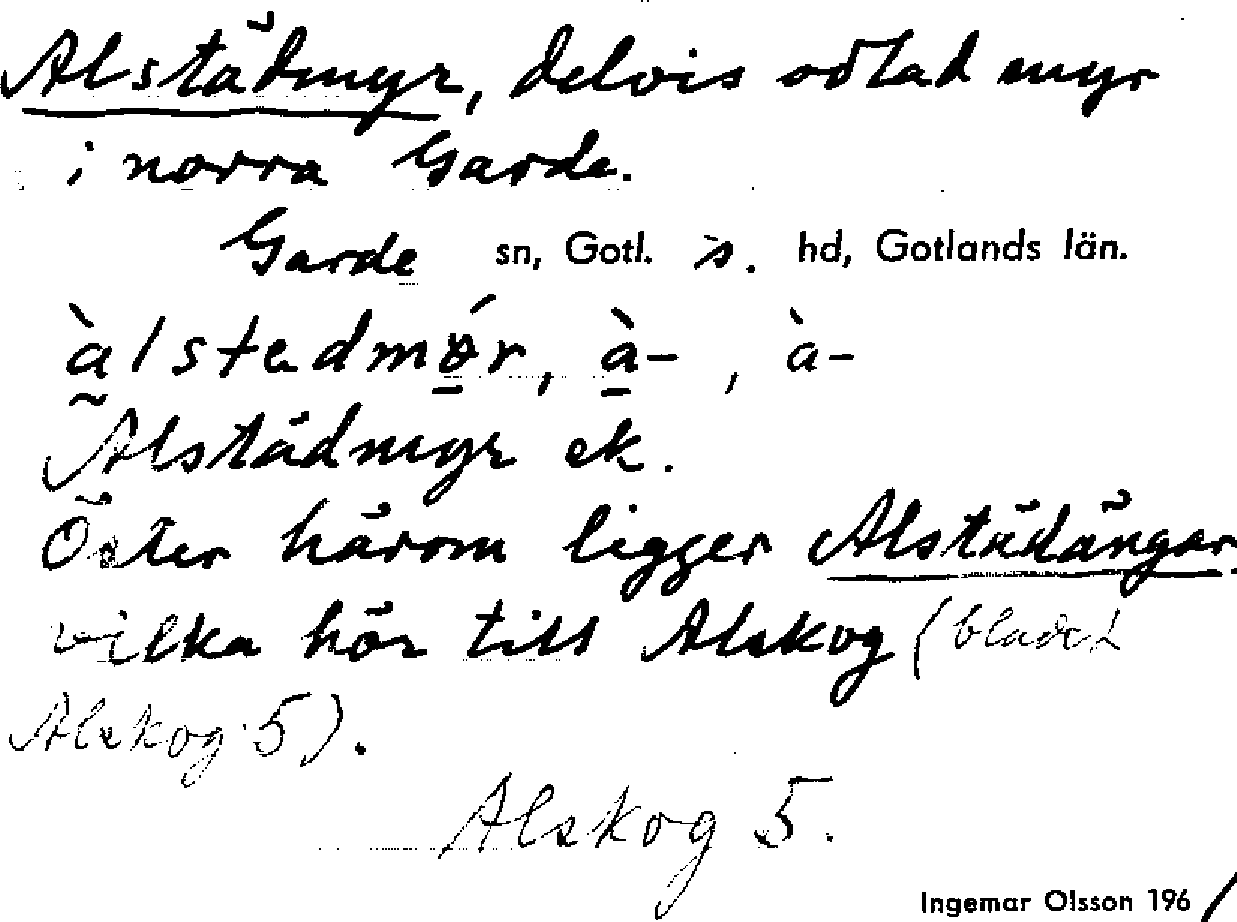 Alstädmyr, delvis odlad myr
i norra Garde.
Garde sn, Gotl. s. hd, Gotlands län.
àlstedmǿr, à-, à-
Alstädmyr ek.
Öster härom ligger Alstädängar,
vilka hör till Alskog (bladet
Alskog 5).
Alskog 5.
Ingemar Olsson 1961